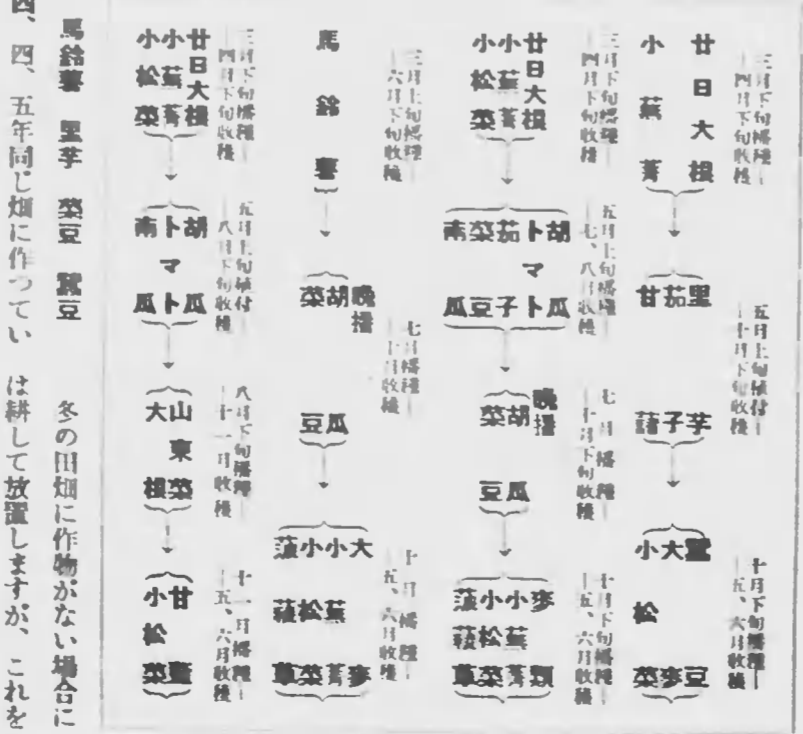 三月下旬播種―
―四月下旬收穫
廿日大根
小蕪菁
五月上旬植付―
―十月下旬收穫
里芋
茄子
甘藷
十月下旬播種―
―五、六月收穫
蠶豆
大麥
小松菜
三月下旬播種―
―四月下旬收穫
廿日大根
小蕪菁
小松菜
五月上旬播種―
―七、八月收穫
胡瓜
トマト
茄子
菜豆
南瓜
七月播種―
―十月下旬收穫
晩播
胡瓜
菜豆
十月下旬播種―
―五、六月收穫
麥類
小蕪菁
小松菜
菠薐草
三月上旬播種―
―六月下旬收穫
馬鈴薯
七月播種―
―十月收穫
晩播
胡瓜
菜豆
十月播種―
―五、六月收穫
大麥
小蕪菁
小松菜
菠薐草
三月下旬播種―
―四月下旬收穫
廿日大根
小蕪菁
小松菜
五月上旬植付―
―八月下旬收穫
胡瓜
トマト
南瓜
八月下旬播種―
―十一月收穫
山東菜
大根
十一月播種―
―五、六月收穫
甘藍
小松菜
馬鈴薯 里芋 菜豆 蠶豆
四、五年同じ畑に作つてい
冬の田畑に作物がない場合に
は耕して放置しますが、これを